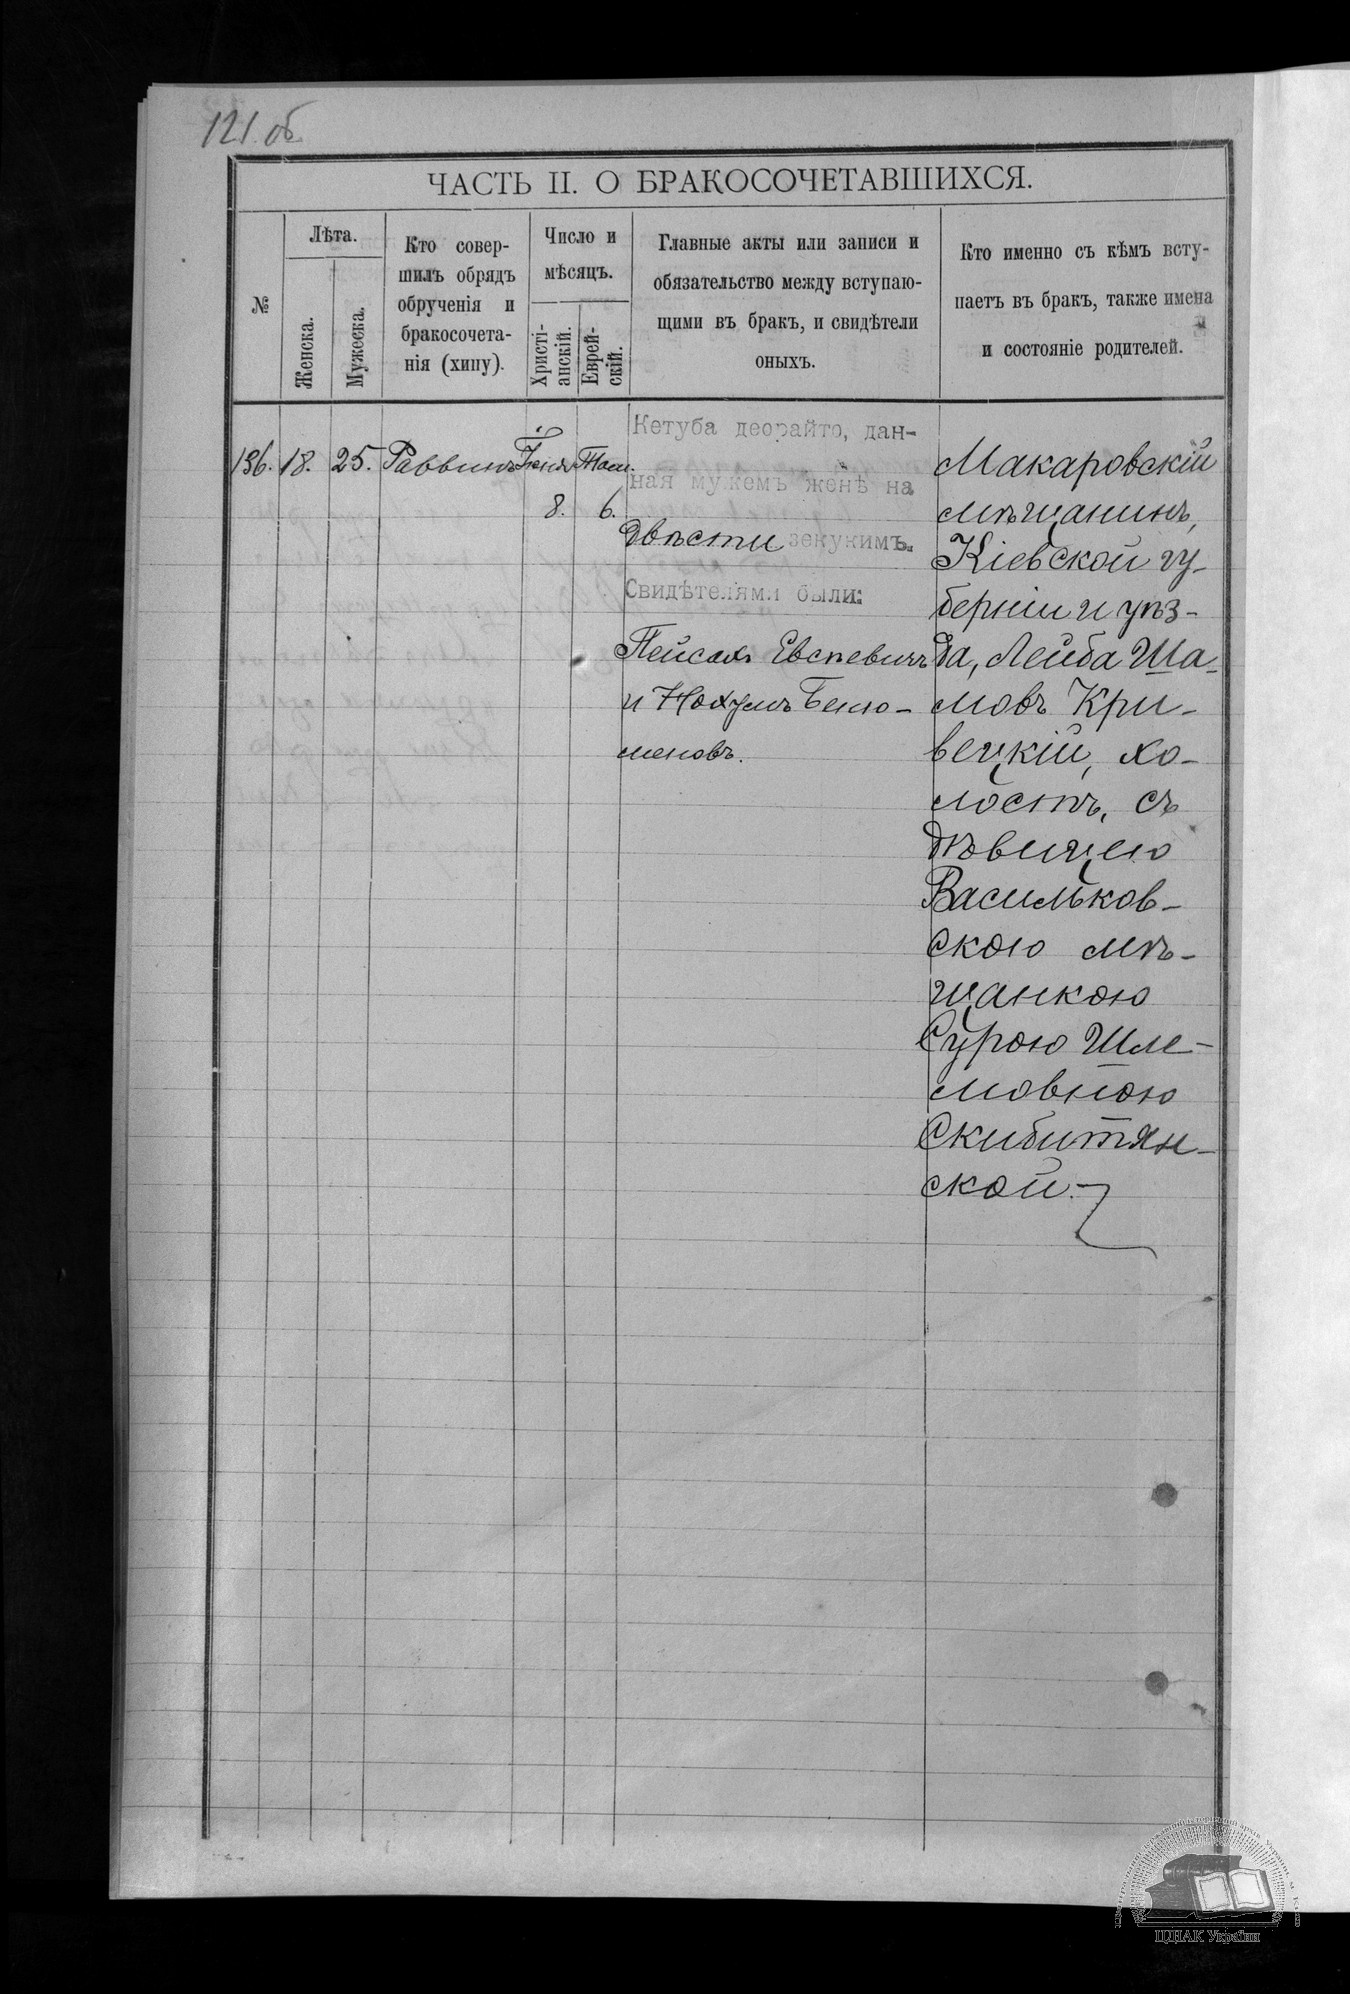 121 об
ЧАСТЬ II. О БРАКОСОЧЕТАВШИХСЯ.
№
Лѣта.
Женска.
Мужеска.
Кто совер-
шилъ обрядъ
обрученія и
бракосочета-
нія (хипу).
Число и
мѣсяцъ.
Христі-
анскій.
Еврей-
скій.
Главные акты или записи и
обязательство между вступаю-
щими въ бракъ, и свидѣтели
оныхъ.
Кто именно съ кѣмъ всту-
паетъ въ бракъ, также имена
и состояніе родителей.
136. 18. 25. Раввинъ
8. 6.
Кетуба деорайто, дан-
ная мужемъ женѣ на
двѣсти зекукимъ.
Свидѣтелями были:
Пейсахъ
и Нохумъ
Макаровскій
мѣщанинъ,
Кіевской гу-
берніи и уѣз-
да, Лейба Ша-
мовъ Кри-
вецкій, хо-
лостъ, съ
дѣвицею
Васильков-
скою мѣ-
щанкою
Сурою Шле-
мовною
Скибитян-
ской.
ЦДІАК України